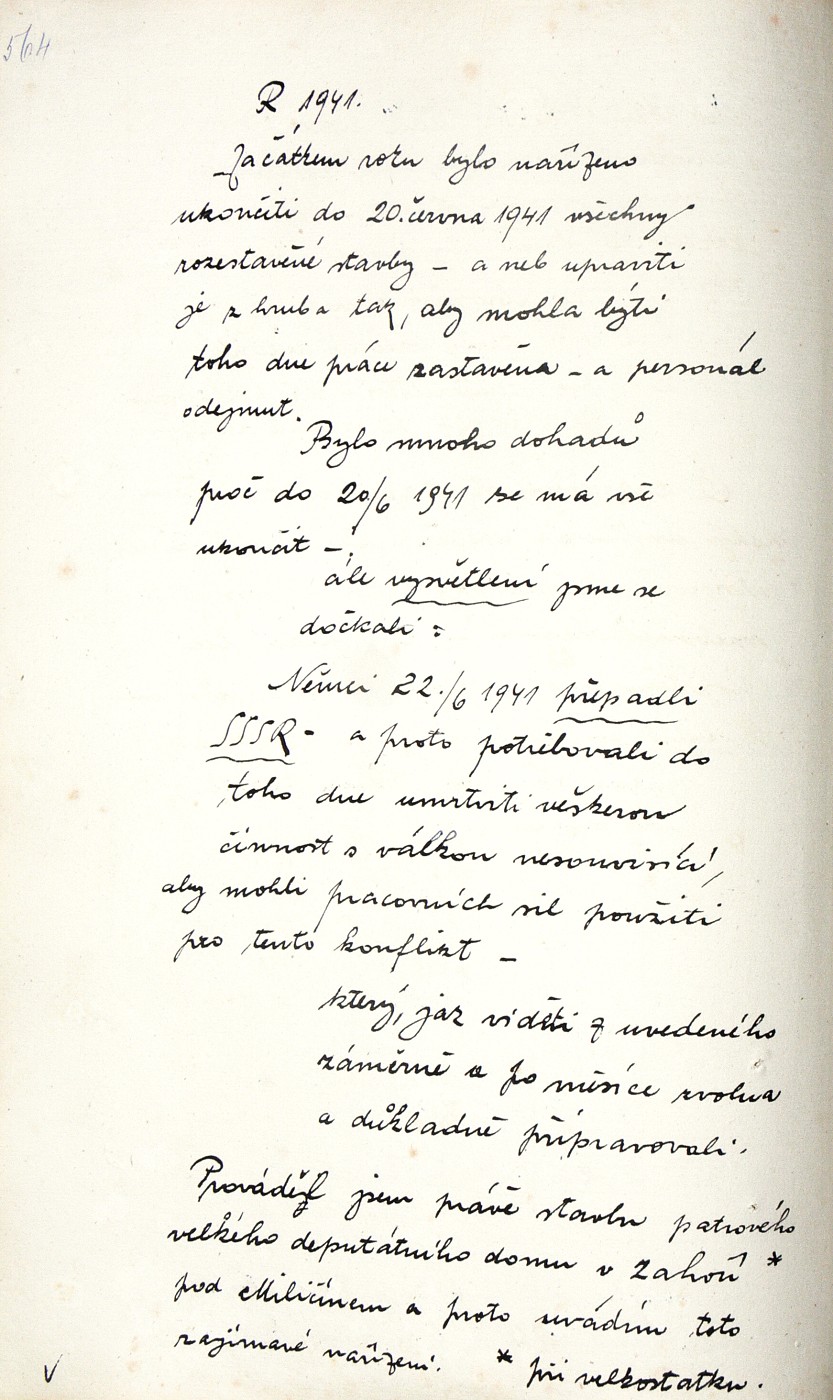 564
R 1941.
Začátkem roku bylo nařízeno
ukončiti do 20. června 1941 všechny
rozestavěné stavby – a neb upraviti
je z hruba tak, aby mohla býti
toho dne práce zastavena – a personál
odejmut.
Bylo mnoho dohadů
proč do 20/6 1941 se má vše
ukončit –.
ále vysvětlení jsme se
dočkali :
Němci 22./6 1941 přepadli
SSSR – a proto potřebovali do
toho dne umrtviti veškerou
činnost s válkou nesouvisící,
aby mohli pracovních sil použiti
pro tento konflikt –
který, jak viděti z uvedeného
záměrně a po měsíce zvolna
a důkladně připravovali.
Prováděl jsem právě stavbu patrového
velkého deputátního domu v Zahoří *
pod Miličínem a proto uvádím toto
zajímavé nařízení. * při velkostatku.
V